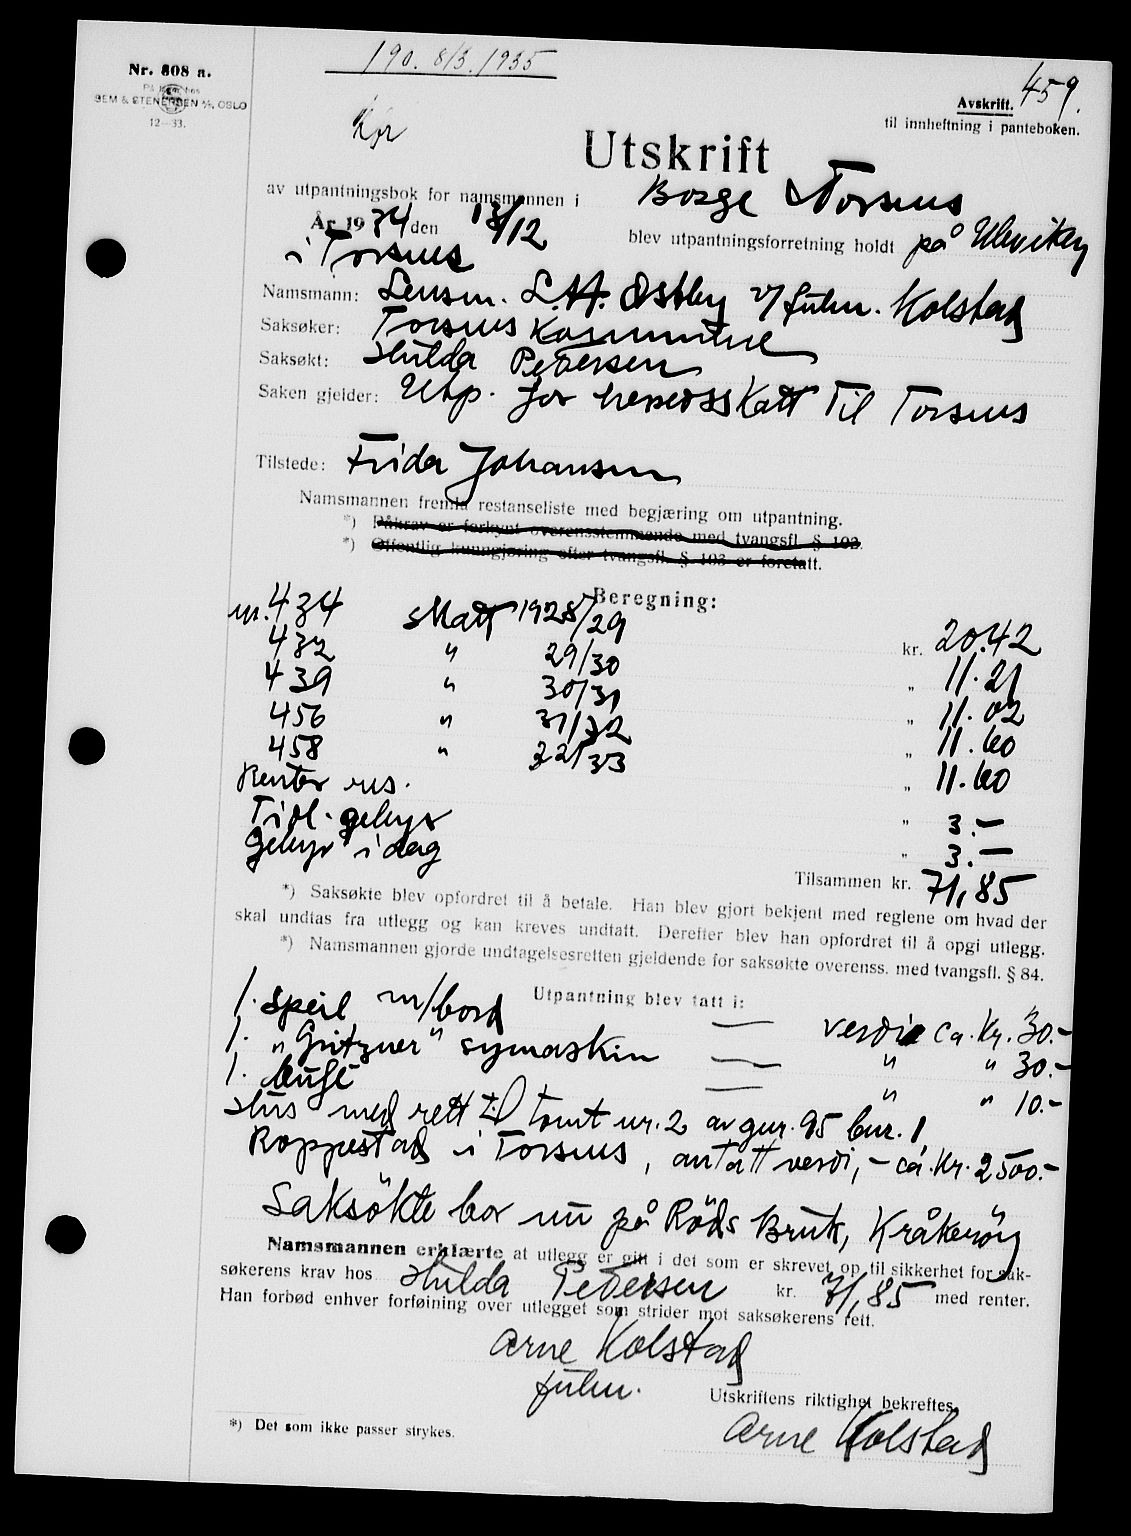 190. 8/3. 1935
459.
Nr. 808 a.
SEM & STENERSEN A/S, OSLO
12—33.
Avskrift.
til innheftning i panteboken.
Utskrift
av utpantningsbok for namsmannen i Borge Torsnes
År 1934 den 13/12 blev utpantningsforretning holdt på Ulevikeng
i Torsnes
Namsmann: Lensm. L.A. Østby v/ fulm. Kolstad
Saksøker: Torsnes Kommune
Saksøkt: Hulda Pedersen
Saken gjelder: Utp. for herredsskatt til Torsnes
Tilstede: Frida Johansen
Namsmannen fremla restanseliste med begjæring om utpantning.
*) Påkrav er forkynt overensstemmende med tvangsfl. § 103.
*) Offentlig kunngjøring efter tvangsfl. § 103 er foretatt.
Beregning:
nr. 434 Skatt 1928/29 kr. 20.42
432 " 29/30 " 11.21
439 " 30/31 " 11.02
456 " 31/32 " 11.60
458 " 32/33 " 11.60
Renter res.
Tidl. gebyr " 3.—
Gebyr i dag " 3.—
Tilsammen kr. 71,85
*) Saksøkte blev opfordret til å betale. Han blev gjort bekjent med reglene om hvad der
skal undtas fra utlegg og kan kreves undtatt. Derefter blev han opfordret til å opgi utlegg.
*) Namsmannen gjorde undtagelsesretten gjeldende for saksøkte overenss. med tvangsfl. § 84.
Utpantning blev tatt i:
1. speil m/bord — verdi ca. kr. 30.-
1. "Gritzner" symaskin — " " 30.-
1. buffé — " " 10.-
Hus med rett til tomt nr. 2 av gnr. 95 bnr. 1
Roppestad i Torsnes, antatt verdi,- ca. kr. 2500.-
Saksökte bor nu på Röds Bruk, Kråkeröy
Namsmannen erklærte at utlegg er gitt i det som er skrevet op til sikkerhet for sak-
søkerens krav hos Hulda Pedersen kr. 71,85 med renter.
Han forbød enhver forføining over utlegget som strider mot saksøkerens rett.
Arne Kolstad
fulm.
Utskriftens riktighet bekreftes.
Arne Kolstad
*) Det som ikke passer strykes.